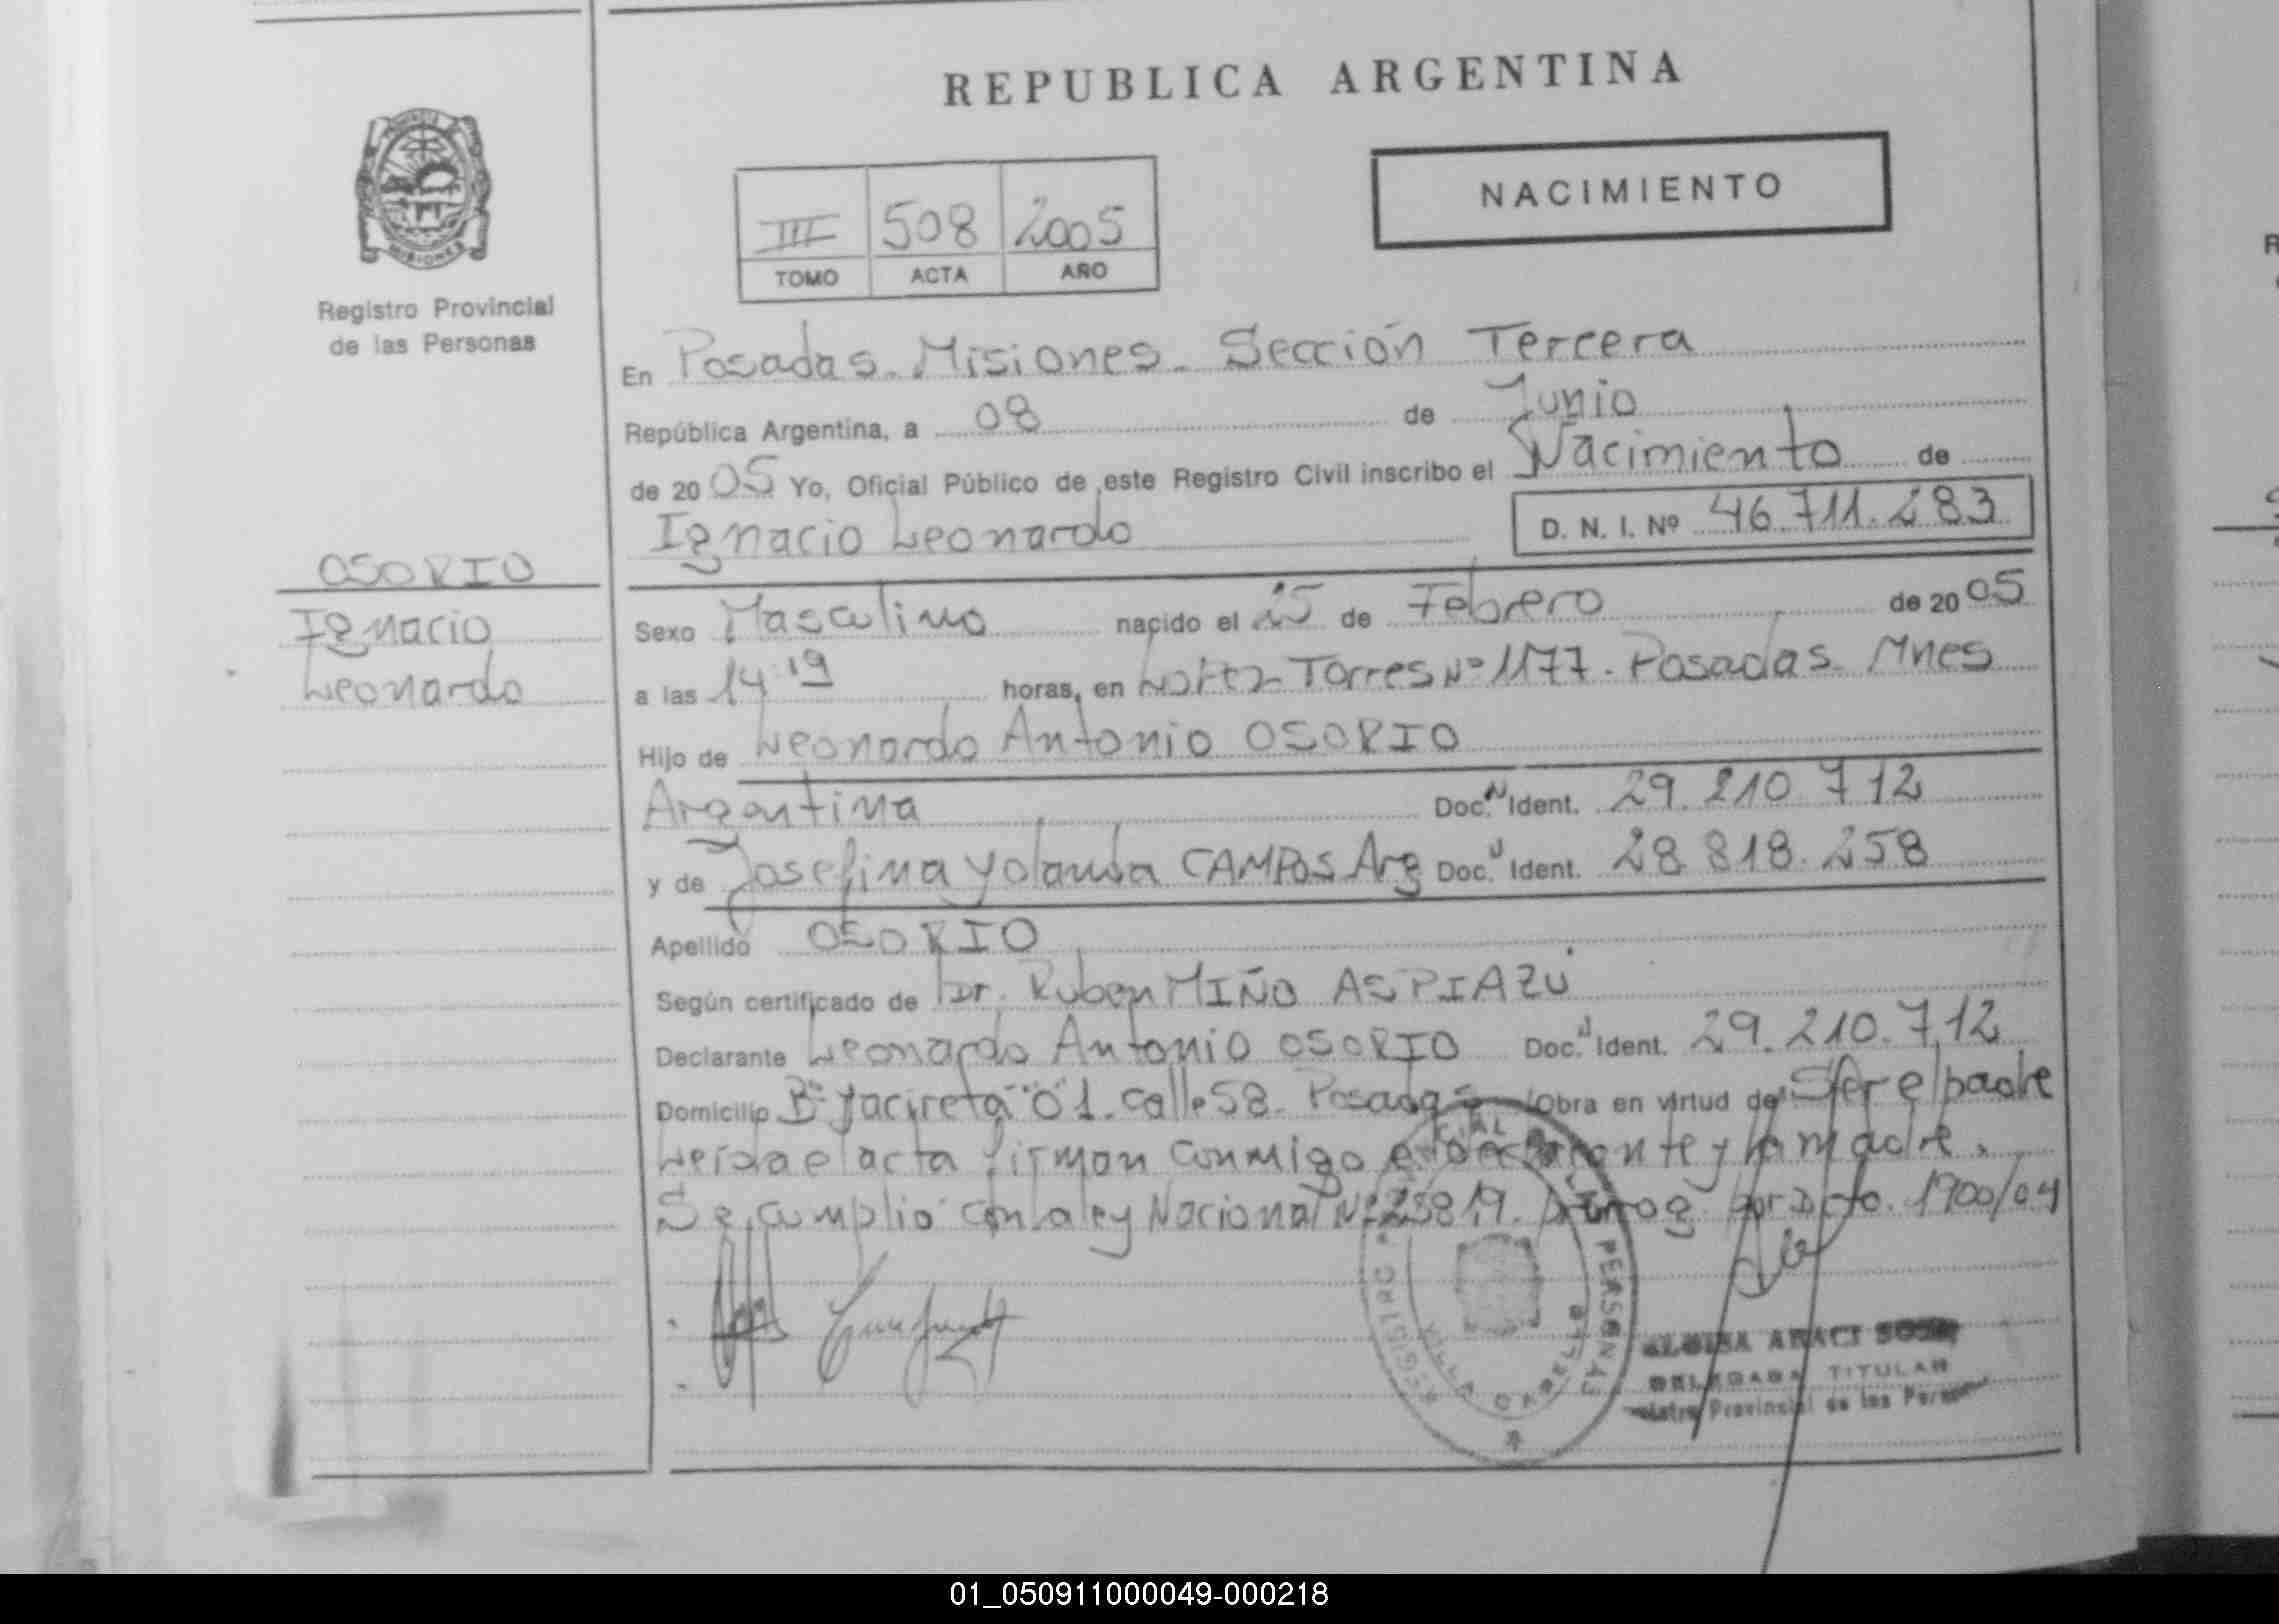 REPUBLICA ARGENTINA
NACIMIENTO
III 508 2005
TOMO ACTA AÑO
PROVINCIA DE
MISIONES
Registro Provincial
de las Personas
OSORIO
Ignacio
Leonardo
En Posadas. Misiones. Sección Tercera
República Argentina, a 08 de Junio
de 2005 Yo, Oficial Público de este Registro Civil inscribo el Nacimiento de
Ignacio Leonardo D. N. I. Nº 46.711.283
Sexo Masculino nacido el de Febrero de 2005
a las 14:19 horas, en Torres Nº 1177. Posadas. Mnes
Hijo de Leonardo Antonio OSORIO
Argentina Doc. N Ident. 29.210.712
y de Josefina Yolanda CAMPOS Arg Doc. N Ident. 28.818.258
Apellido OSORIO
Según certificado de Dr. Ruben MIÑO ASPIAZÚ
Declarante Leonardo Antonio OSORIO Doc. N Ident. 29.210.712
Domicilio Bº Yacireta "01. Calle 58. Posadas Obra en virtud de Ser el padre
Leida el acta firman conmigo el declarante y la madre.
Se cumplio con la ley Nacional Nº 25819. Prrog. por Dcto. 1900/04
VILLA CABELLO
PERSONAS
ARACI
DELEGADA TITULAR
Provincial de las
01_050911000049-000218